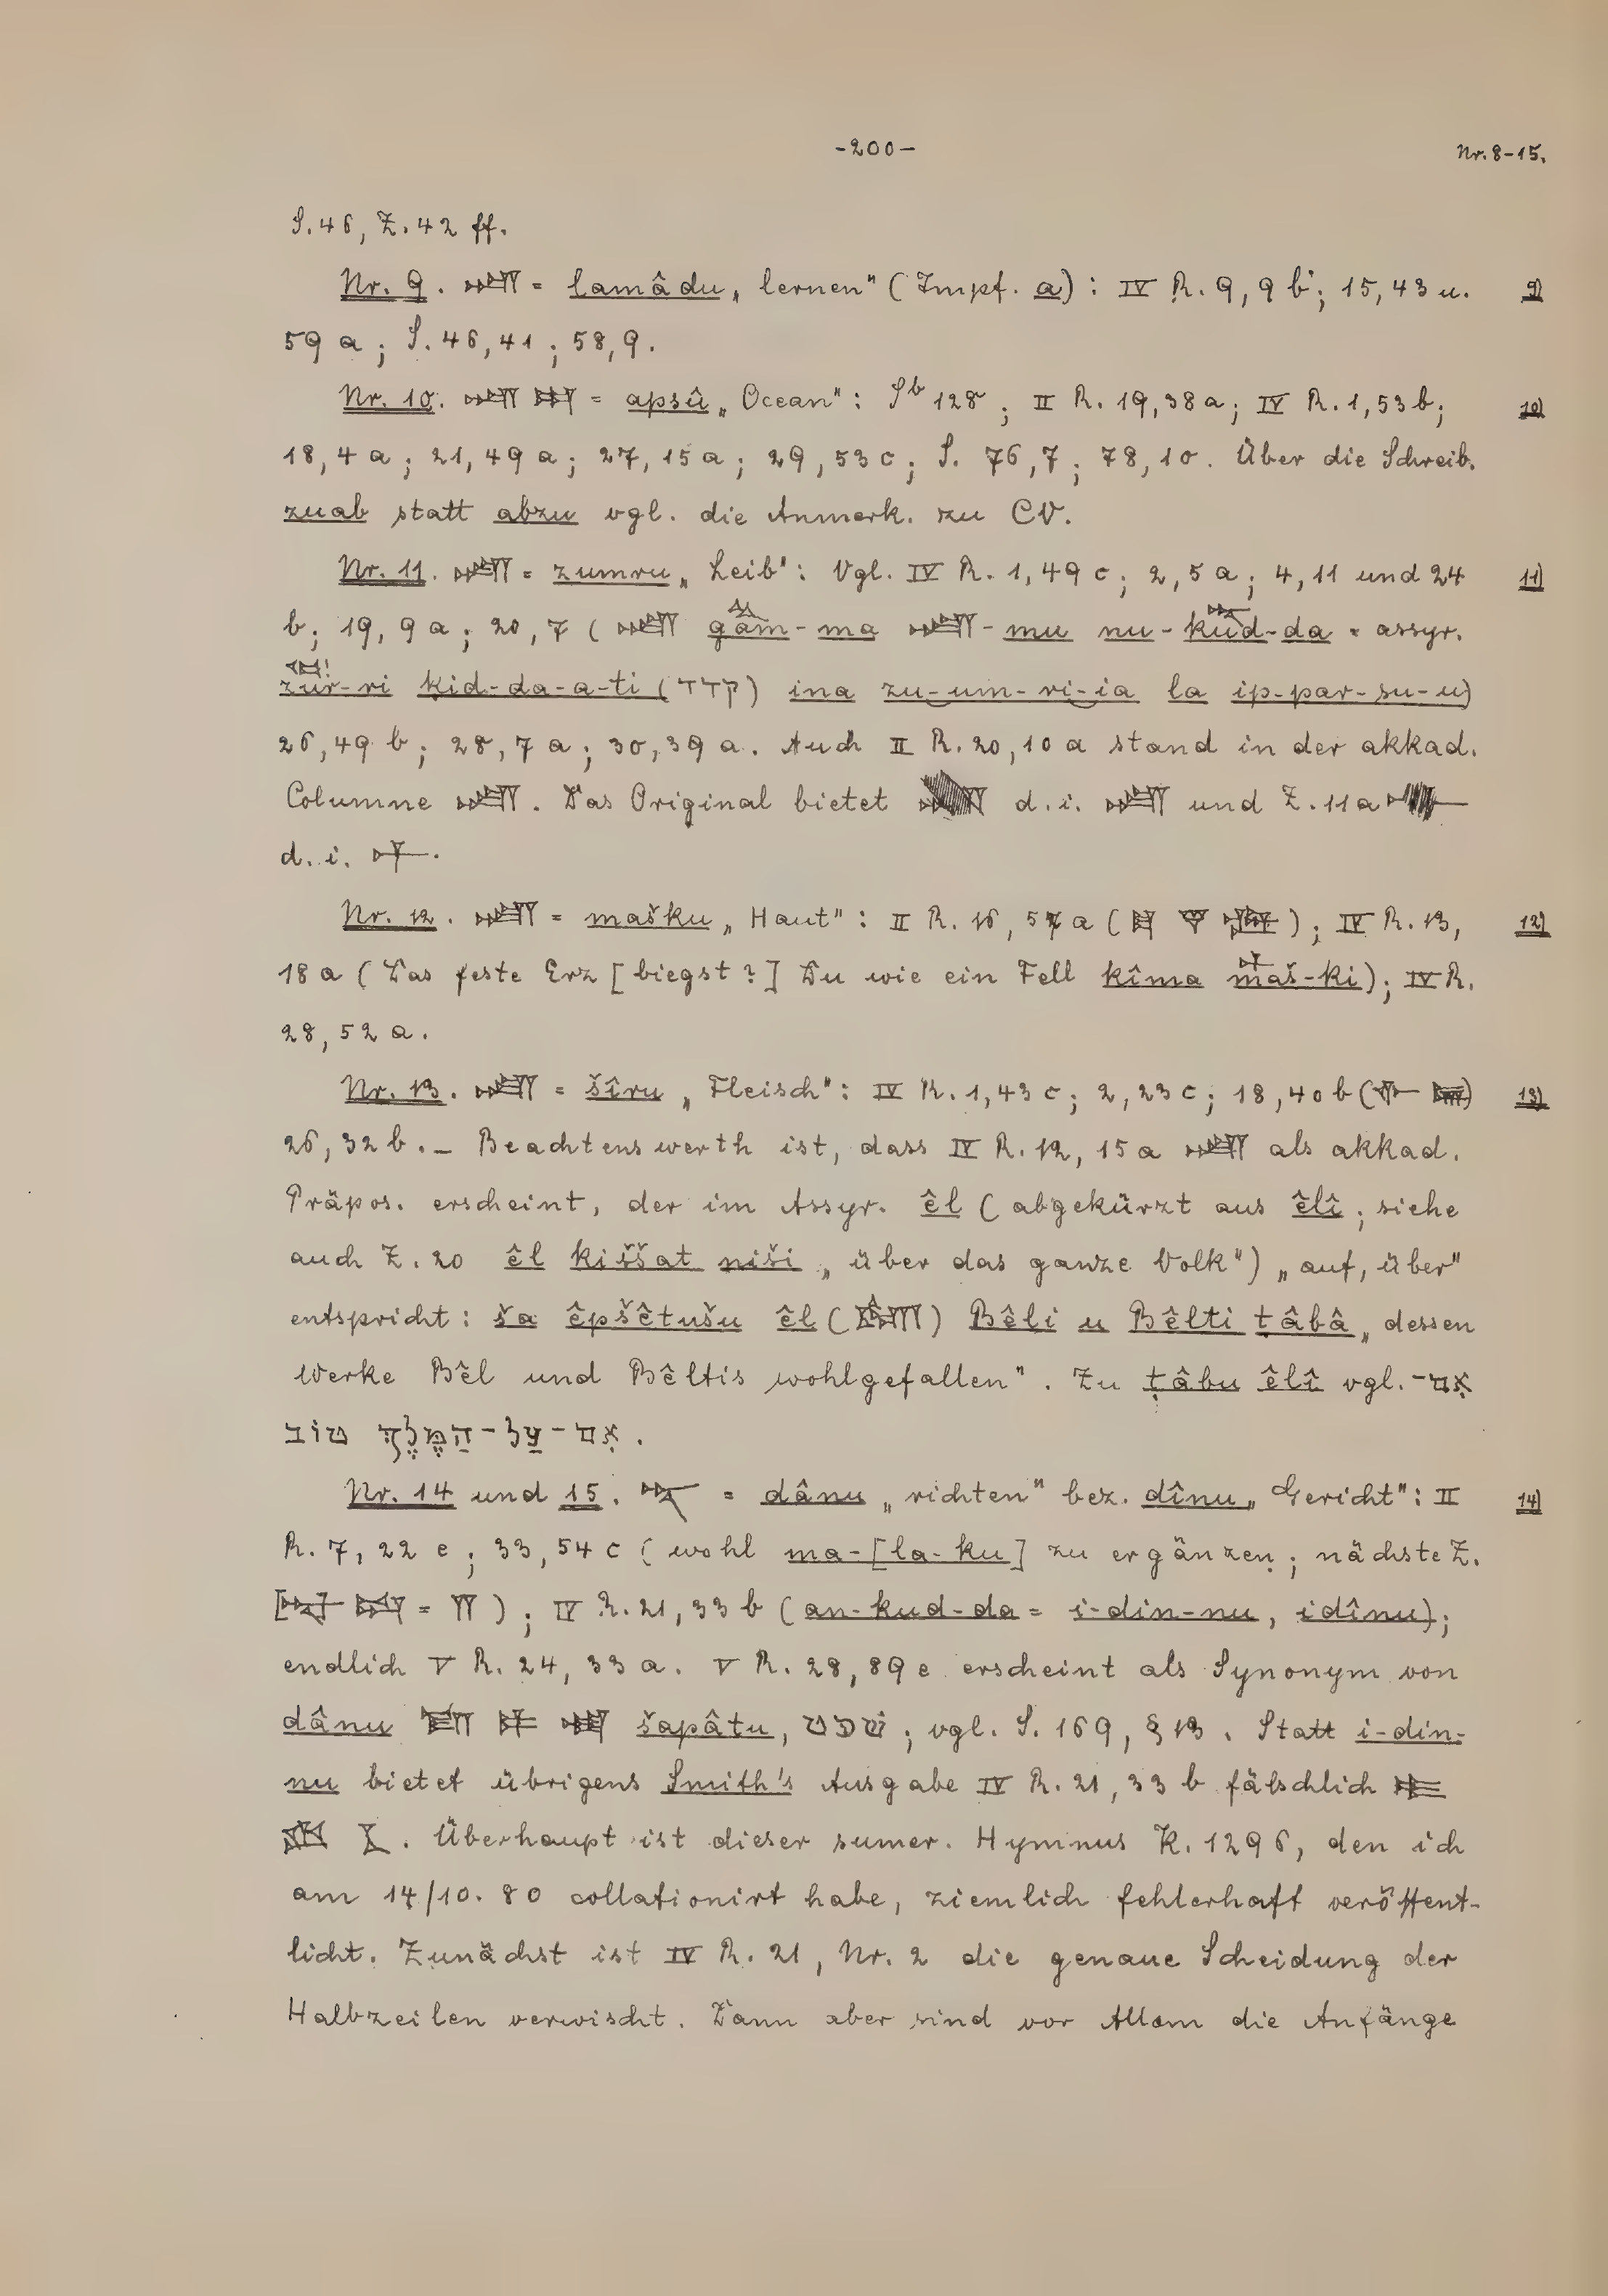 -200-
Nr. 8-15.
S. 46, Z. 42 ff.
Nr. 9. 𒋢 = lamâdu „lernen" (Impf. a): IV R. 9, 9 b; 15, 43 u. 9)
59 a; S. 46, 41; 58, 9.
Nr. 10. 𒍪 𒀊 = apsû „Ocean": Sb 128; II R. 19, 38 a; IV R. 1, 53 b; 10)
18, 4 a; 21, 49 a; 27, 15 a; 29, 53 c; S. 76, 7; 78, 10. Über die Schreib.
zuab statt abzu vgl. die Anmerk. zu CV.
Nr. 11. = zumru „Leib": Vgl. IV R. 1, 49 c; 2, 5 a; 4, 11 und 24 11)
b; 19, 9 a; 20, 7 ( gâm-ma -mu nu-kud-da = assyr.
zur-ri kid-da-a-ti ( ) ina zu-um-ri-ia la ip-par-su-u)
26, 49 b; 28, 7 a; 30, 39 a. Auch II R. 20, 10 a stand in der akkad.
Columne . Das Original bietet d. i. und Z. 11 a
d. i. .
Nr. 12. = mašku „Haut": II R. 16, 57 a ( ); IV R. 13, 12)
18 a (Das feste Erz [biegst?] Du wie ein Fell kîma maš-ki); IV R.
28, 52 a.
Nr. 13. = šîru „Fleisch": IV R. 1, 43 c; 2, 23 c; 18, 40 b ( ) 13)
26, 32 b. – Beachtenswerth ist, dass IV R. 12, 15 a als akkad.
Präpos. erscheint, der im Assyr. êl (abgekürzt aus êlî; siehe
auch Z. 20 êl kiššat niši „über das ganze Volk") „auf, über"
entspricht: ša êpšêtušu êl ( ) Bêli u Bêlti ṭâbâ „dessen
Werke Bêl und Bêltis wohlgefallen". Zu ṭâbu êlî vgl. אִם־
אִם־עַל־הַמֶּלֶךְ טוֹב.
Nr. 14 und 15. = dânu „richten" bez. dînu „Gericht": II 14)
R. 7, 22 e; 33, 54 c (wohl ma-[la-ku] zu ergänzen; nächste Z.
[ ] = ); IV R. 21, 33 b (an-kud-da = i-din-nu, idînu);
endlich V R. 24, 33 a. V R. 28, 89 e erscheint als Synonym von
dânu šapâtu, שׁפט; vgl. S. 169, § 13. Statt i-din-
nu bietet übrigens Smith's Ausgabe IV R. 21, 33 b fälschlich
. Überhaupt ist dieser sumer. Hymnus K. 1296, den ich
am 14/10. 80 collationirt habe, ziemlich fehlerhaft veröffent-
licht. Zunächst ist IV R. 21, Nr. 2 die genaue Scheidung der
Halbzeilen verwischt. Dann aber sind vor Allem die Anfänge